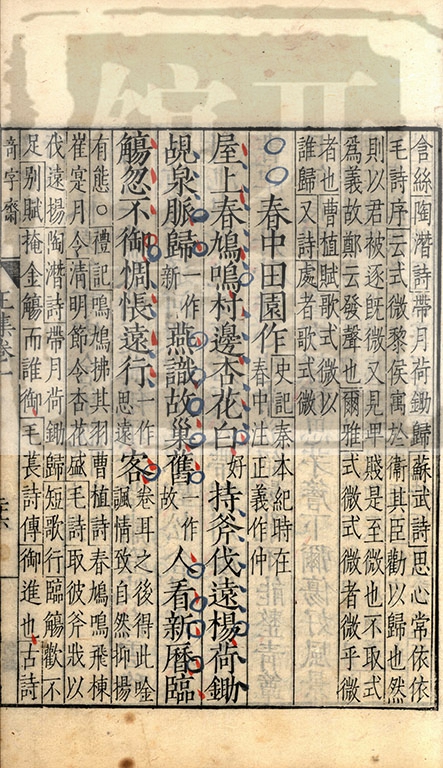 含絲陶潛詩帶月荷鋤歸蘇武詩思心常依依
毛詩序云式微黎侯寓於衛其臣勸以歸也然
則以君被逐旣微又見卑賤是至微也不取式
為義故鄭云發聲也爾雅式微式微者微乎微
者也曹植賦歌式微以
誰歸又詩處者歌式微
○○春中田園作史記秦本紀時在
春中注正義作仲
屋上春鳩鳴村邊杏花白好持斧伐遠楊荷鋤
覘泉脈歸一作新燕識故巢舊一作故人看新曆臨
觴忽不御惆悵遠行一作思遠客卷耳之後得此唫
諷情致自然抑揚
有態○禮記鳴鳩拂其羽曹植詩春鳩鳴飛棟
崔寔月令清明節令杏花盛毛詩取彼斧戕以
伐遠揚陶潛詩帶月荷鋤歸短歌行臨觴歡不
足別賦掩金觴而誰御毛萇詩傳御進也古詩
奇字齋
王集卷一